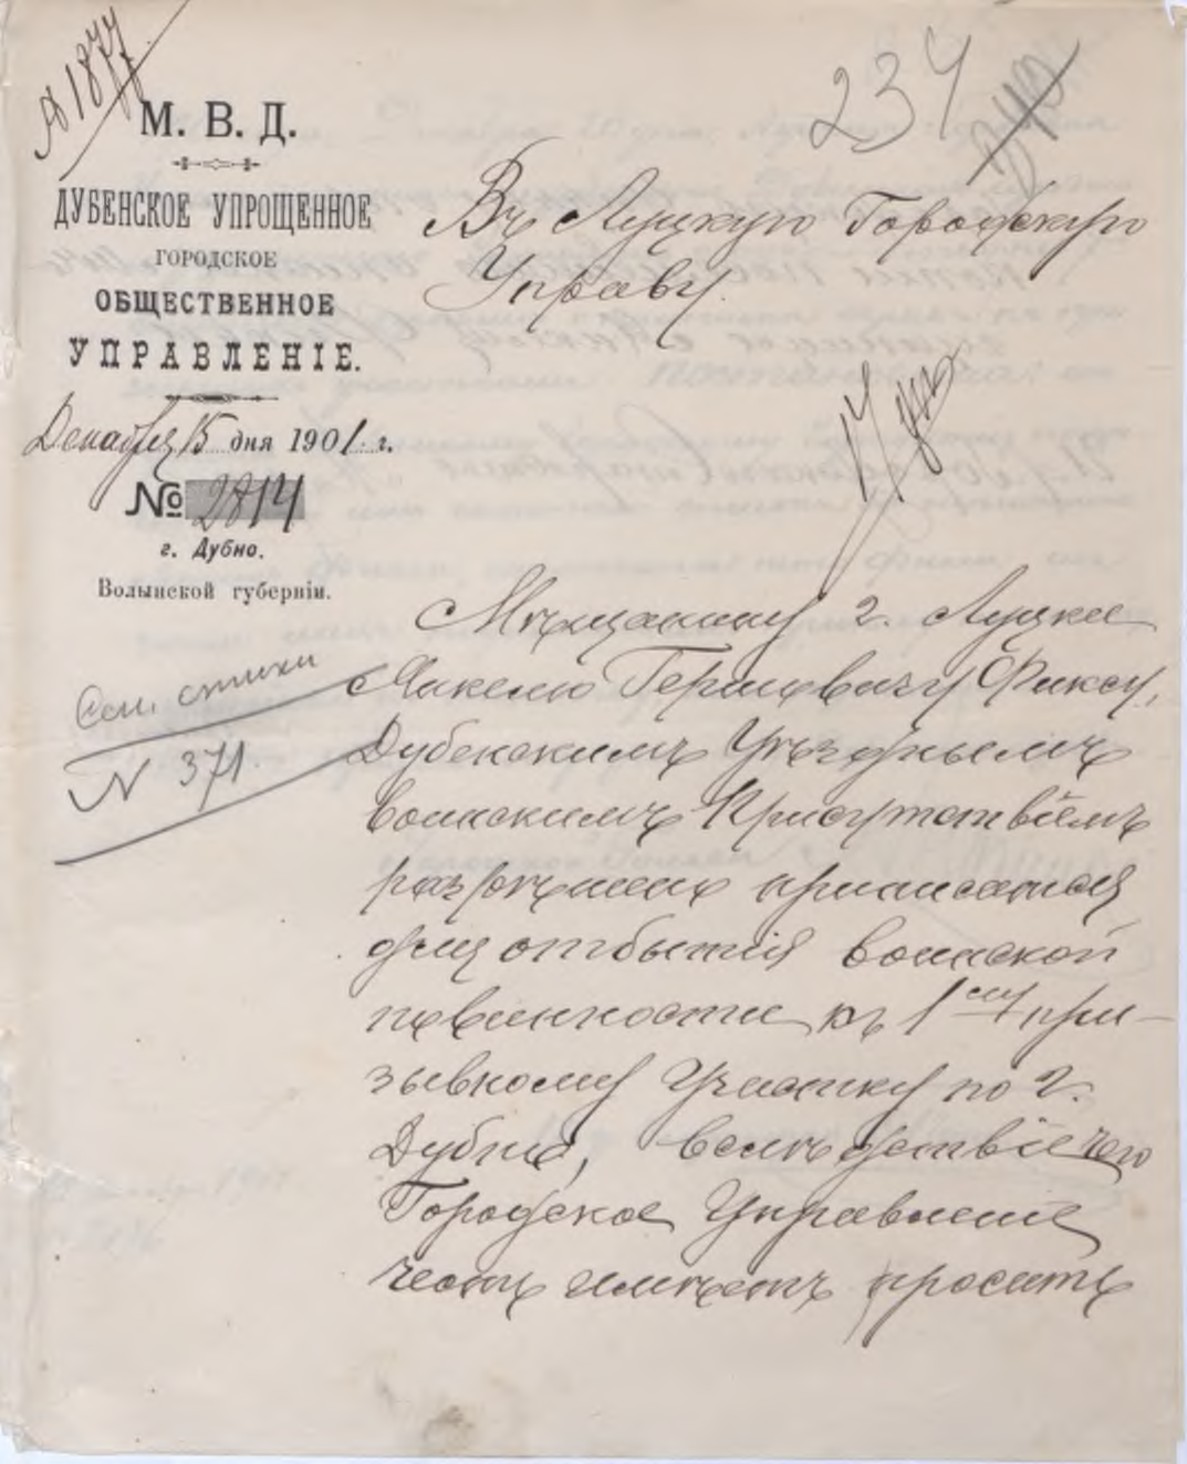 № 1877
234
М. В. Д.
ДУБЕНСКОЕ УПРОЩЕННОЕ
ГОРОДСКОЕ
ОБЩЕСТВЕННОЕ
УПРАВЛЕНІЕ.
Декабря 15 дня 1901 г.
№ 2814
г. Дубно.
Волынской губерніи.
Въ Луцкую Городскую
Управу.
N 371.
Мѣщанину г. Луцка
Гершовичу Фиксу,
Дубенскимъ Уѣзднымъ
воинскимъ Присутствіемъ
разрѣшено приписаться
для отбытія воинской
повинности къ 1му при-
зывному Участку по г.
Дубно, вслѣдствіе чего
Городское Управленіе
честь имѣетъ просить